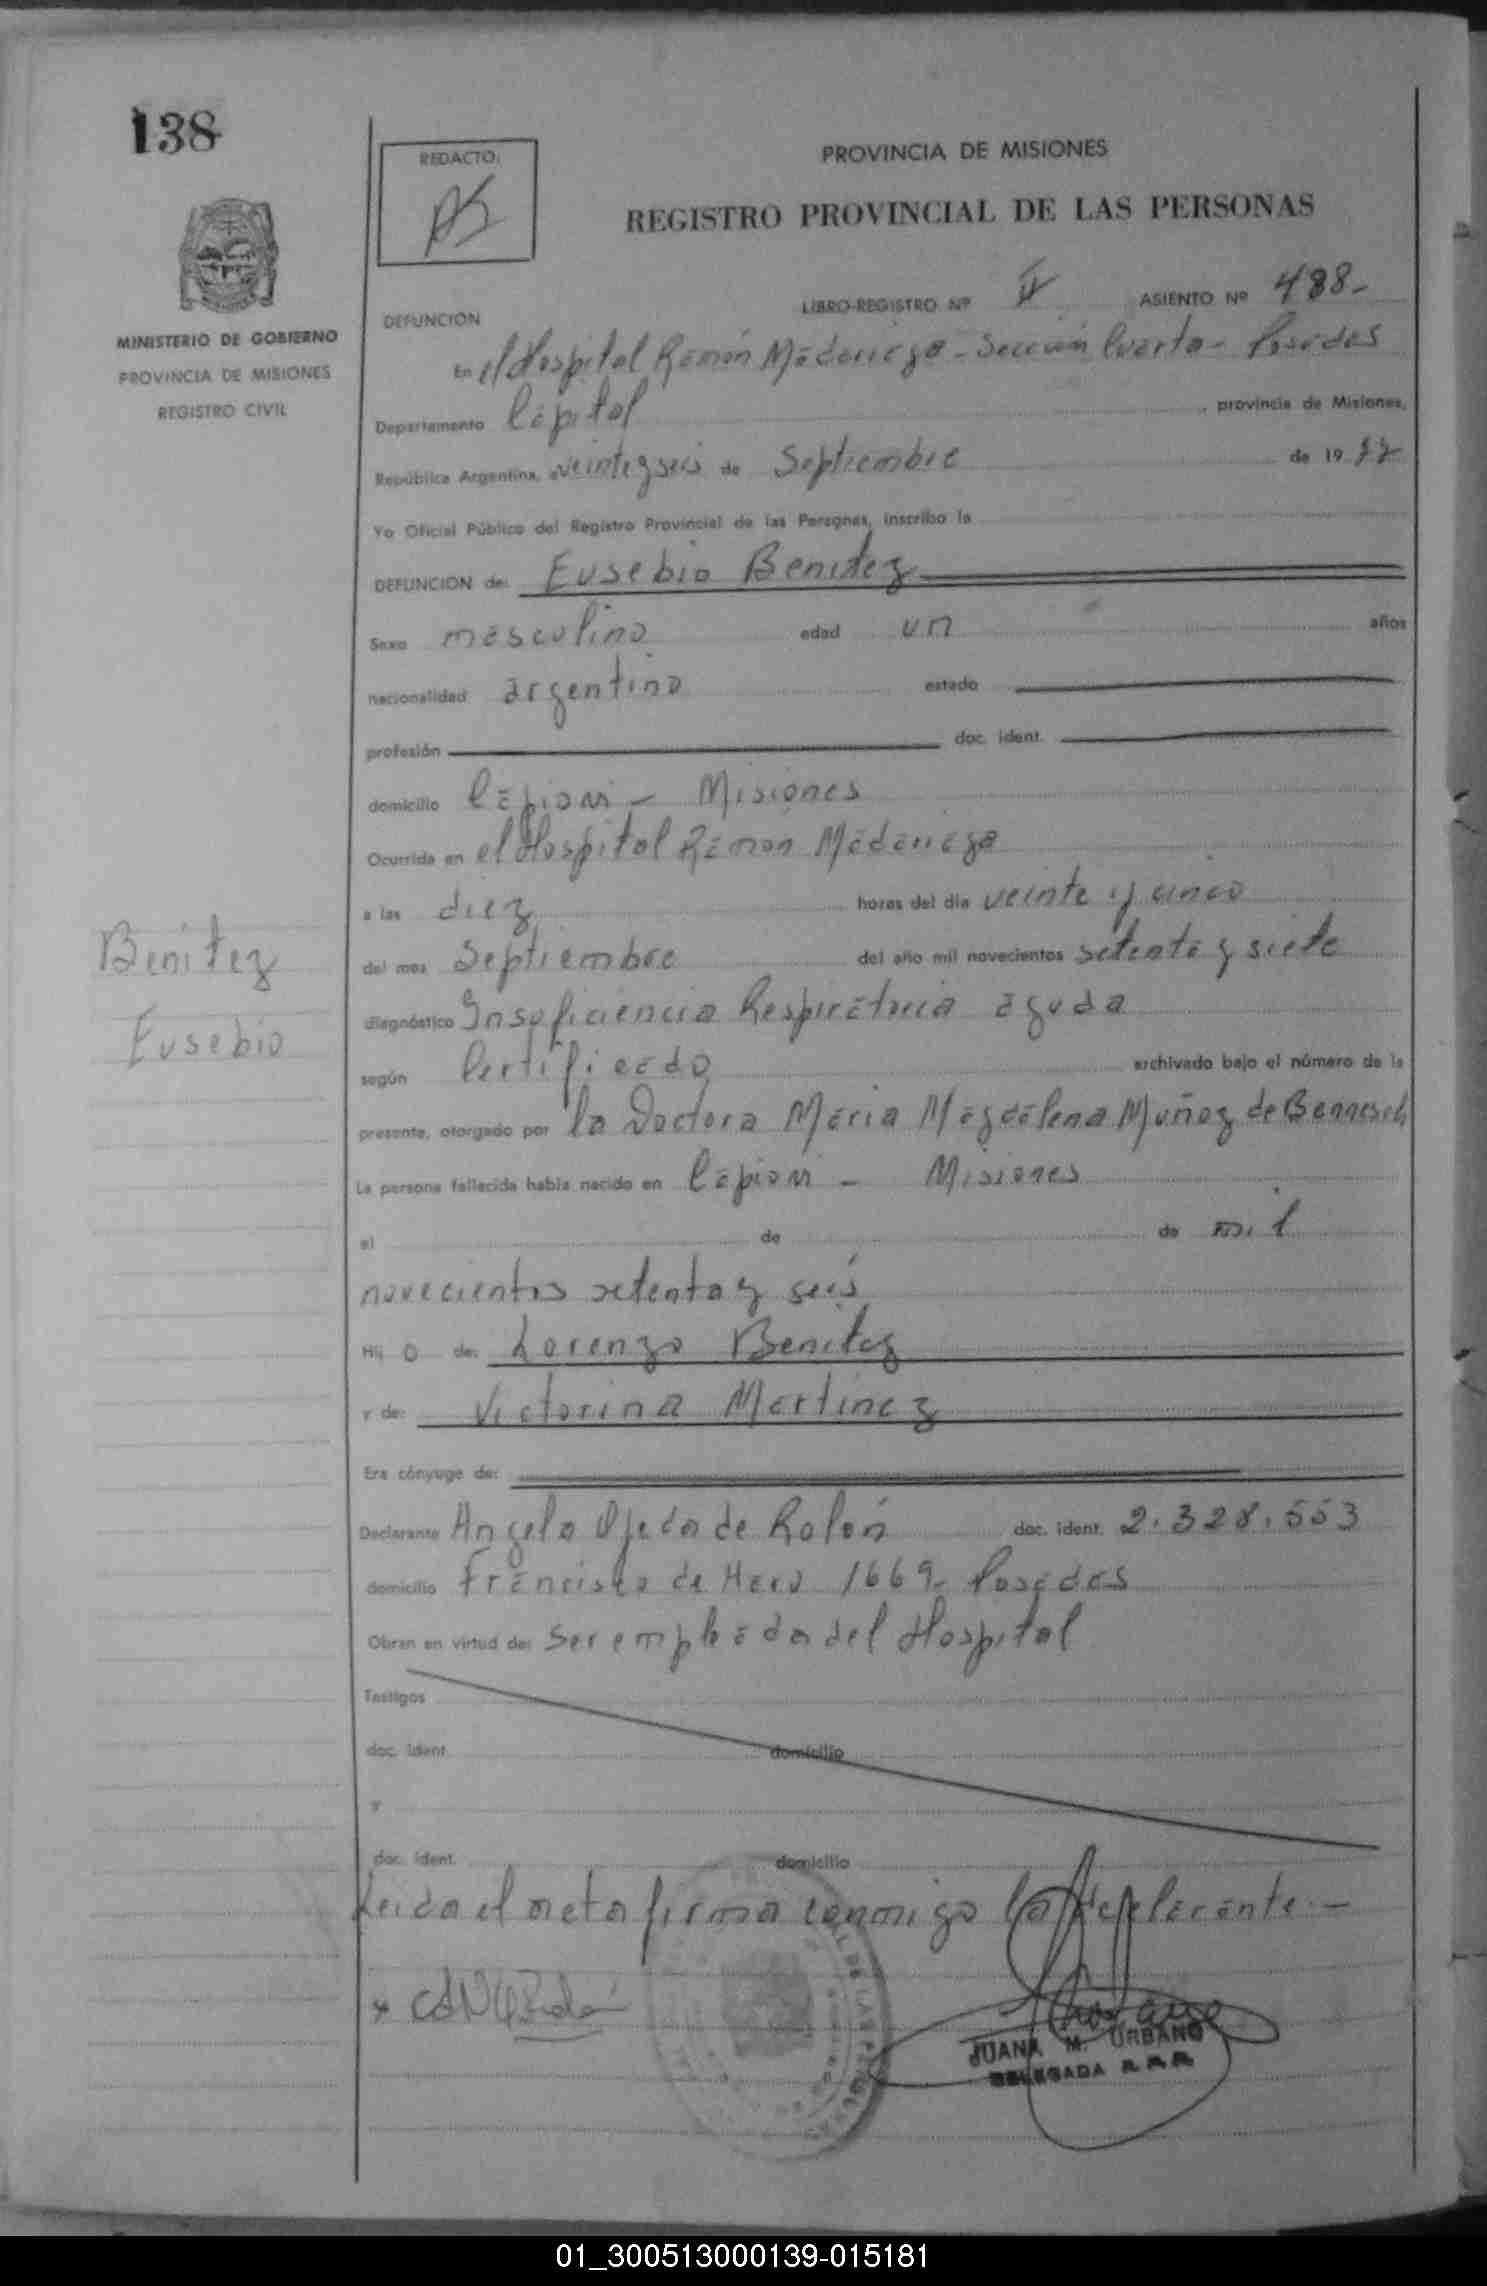 138
REDACTO:
PROVINCIA DE MISIONES
REGISTRO PROVINCIAL DE LAS PERSONAS
MINISTERIO DE GOBIERNO
PROVINCIA DE MISIONES
REGISTRO CIVIL
LIBRO-REGISTRO Nº II ASIENTO Nº 488-
DEFUNCION
En el Hospital Ramón Madariaga - Sección Cuarta - Posadas
Departamento Capital, provincia de Misiones,
República Argentina, a veinte y seis de Septiembre de 1977
Yo Oficial Público del Registro Provincial de las Personas, inscribo la
DEFUNCION de: Eusebio Benitez
Sexo masculino edad un años
nacionalidad argentino estado
profesión doc. ident.
domicilio Capiovi - Misiones
Ocurrida en el Hospital Ramón Madariaga
a las diez horas del día veinte y cinco
del mes Septiembre del año mil novecientos setenta y siete
diagnóstico Insuficiencia Respiratoria aguda
según Certificado archivado bajo el número de la
presente, otorgado por la Doctora Maria Magdalena Muñoz de Bennesch
La persona fallecida había nacido en Capiovi - Misiones
el de de mil
novecientos setenta y seis
Hij o de: Lorenzo Benitez
y de: Victorina Martinez
Era cónyuge de:
Declarante Angela Ojeda de Rolón doc. ident. 2.328.553
domicilio Francisco de Haro 1669- Posadas
Obran en virtud de: Ser empleada del Hospital
Testigos
doc. ident. domicilio
y
doc. ident. domicilio
Leida el acta firma conmigo la declarante.-
JUANA M. URBANO
DELEGADA
Benitez
Eusebio
01_300513000139-015181